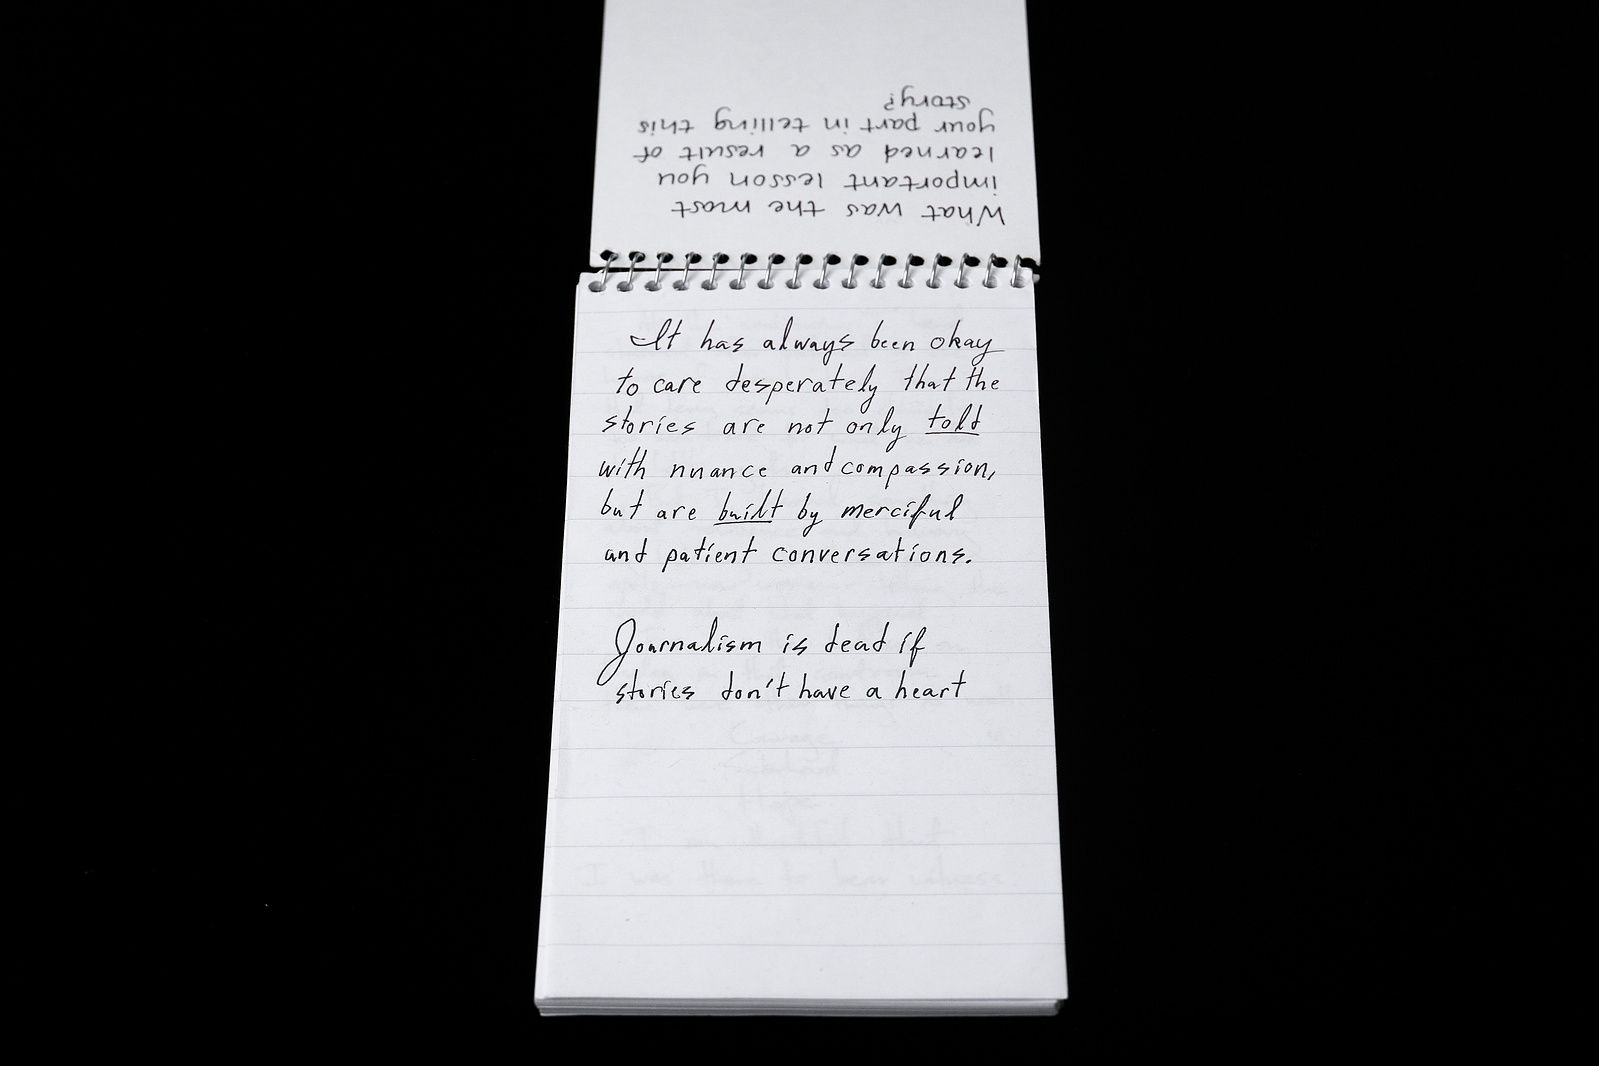 What was the most
important lesson you
learned as a result of
your part in telling this
story?
It has always been okay
to care desperately that the
stories are not only told
with nuance and compassion,
but are built by merciful
and patient conversations.
Journalism is dead if
stories don't have a heart
Courage
Hope
I was there to bear witness